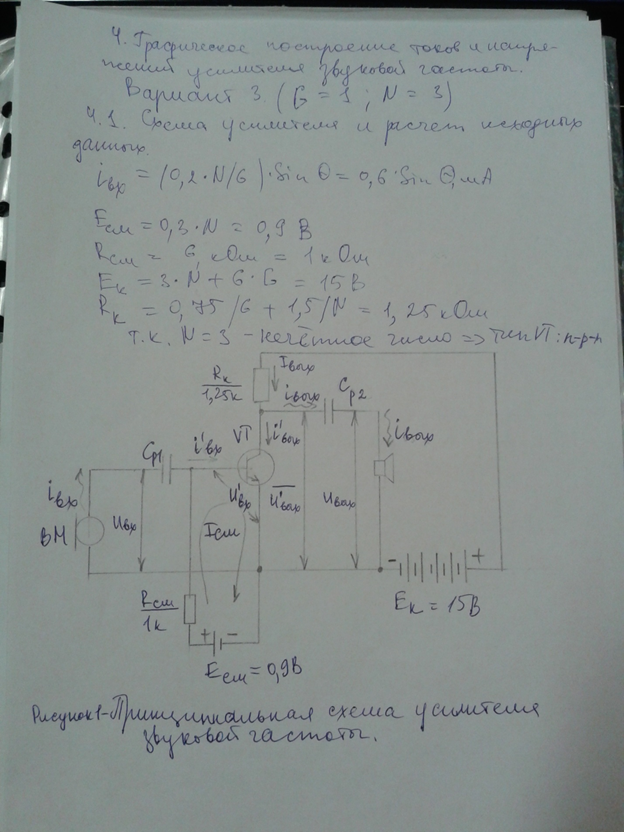 4. Графическое построение токов и напря-
жений усилителя звуковой частоты.
Вариант 3. (G = 1; N = 3)
4.1. Схема усилителя и расчет исходных
данных.
iвх = (0,2·N/G)·Sin Θ = 0,6·Sin Θ, мА
Eсм = 0,3·N = 0,9 В
Rсм = G, кОм = 1 кОм
Eк = 3·N + 6·G = 15В
Rк = 0,75/G + 1,5/N = 1,25 кОм
т.к. N = 3 - нечётное число => тип VT: n-p-n
Rк
1,25к
Iвых
iвых
Cр2
Cр1
i'вх
VT
i'вых
iвых
iвх
ВМ
uвх
u'вх
u'вых
uвых
Iсм
Rсм
1к
+ -
Eсм = 0,9В
- +
Eк = 15В
Рисунок 1 - Принципиальная схема усилителя
звуковой частоты.